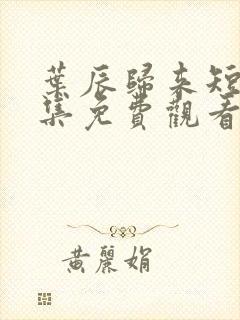 葉辰歸來短
集免費觀看
黃麗娟